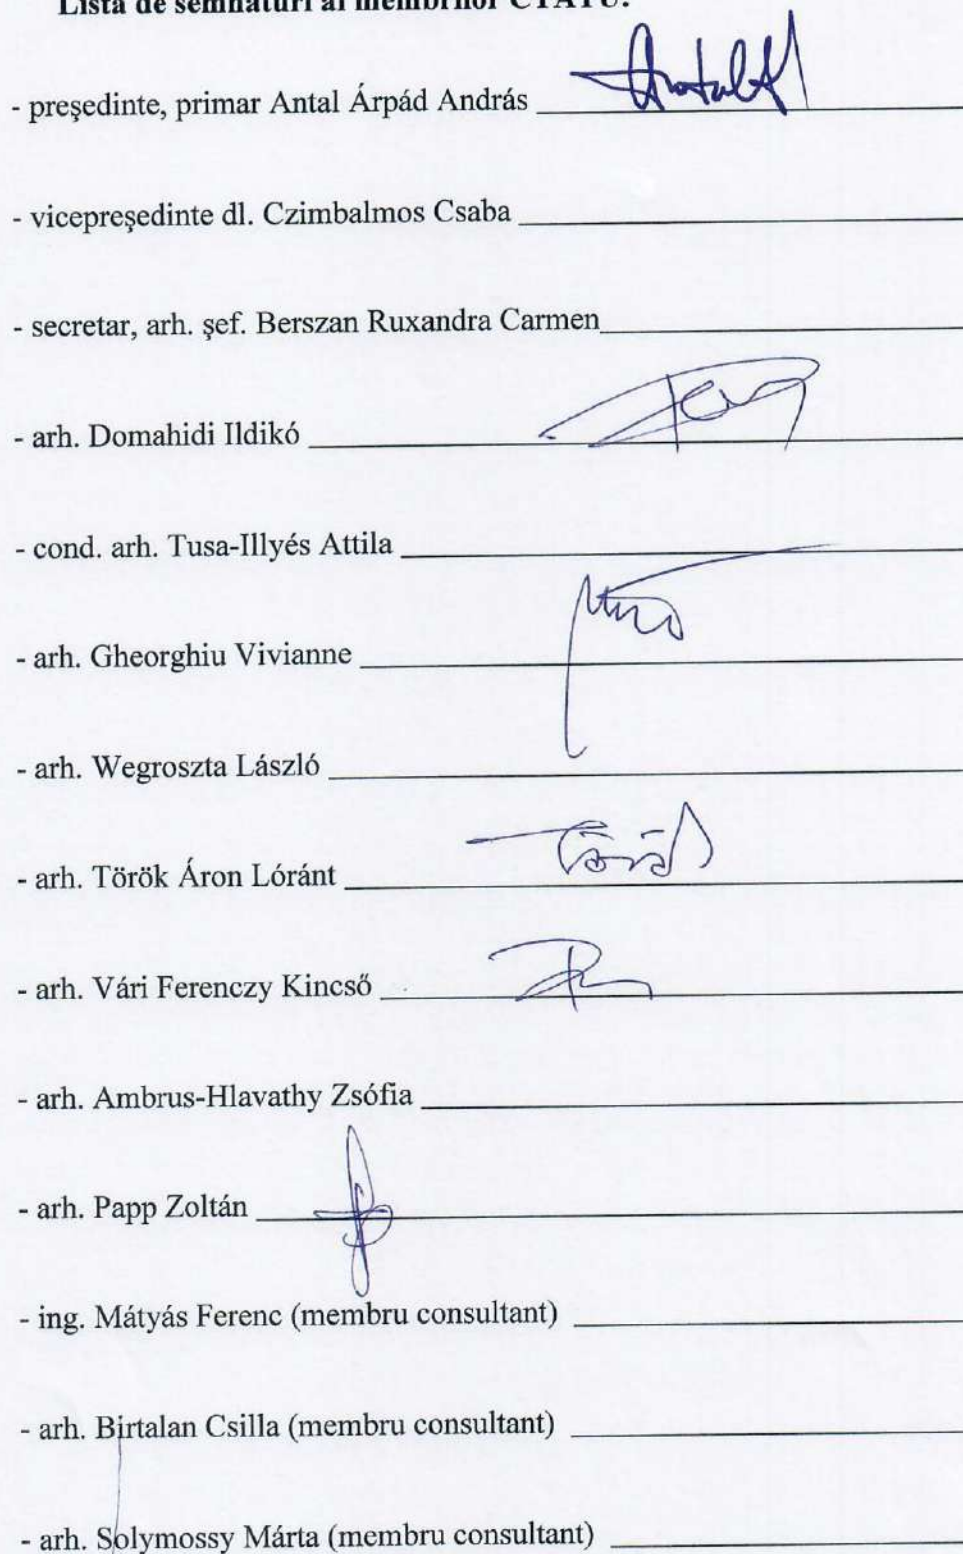 Lista de semnături al membrilor CTATU:
- preşedinte, primar Antal Árpád András
- vicepreşedinte dl. Czimbalmos Csaba
- secretar, arh. şef. Berszan Ruxandra Carmen
- arh. Domahidi Ildikó
- cond. arh. Tusa-Illyés Attila
- arh. Gheorghiu Vivianne
- arh. Wegroszta László
- arh. Török Áron Lóránt
- arh. Vári Ferenczy Kincső
- arh. Ambrus-Hlavathy Zsófia
- arh. Papp Zoltán
- ing. Mátyás Ferenc (membru consultant)
- arh. Birtalan Csilla (membru consultant)
- arh. Solymossy Márta (membru consultant)